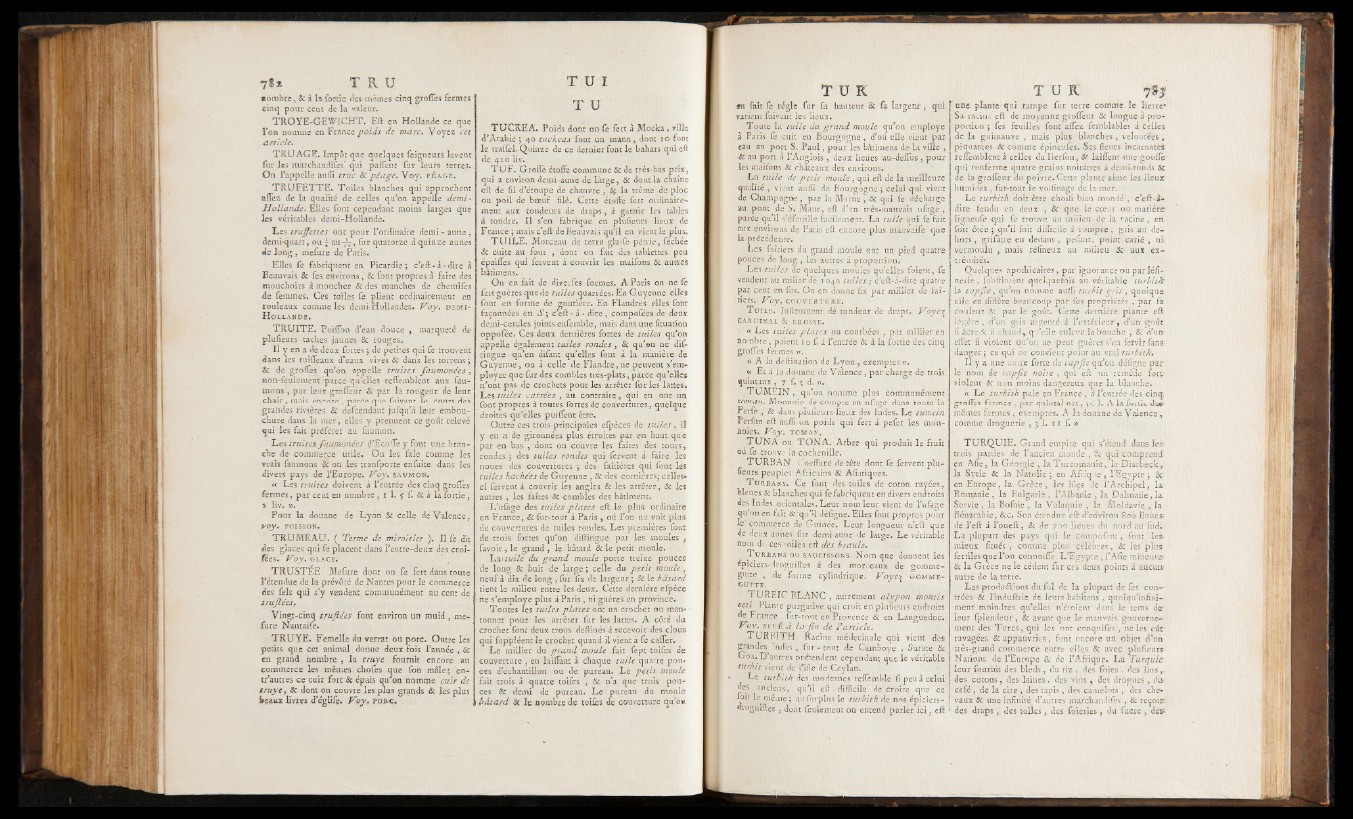 782 T R U
nombre, & à la sortie des mêmes cinq grosses fermes
cinq pour cent de la valeur.
TROYE-GEWICHT. Est en Hollande ce que
l'on nomme en France poids de marc. Voyez cet
article.
TRUAGE. Impôt que quelques seigneurs levent
sur les marchandises qui passent sur leurs terres.
On l'appelle aussi truc & péage. Voy. PÉAGE.
TRUFETTE. Toiles blanches qui approchent
assez de la qualité de celles qu'on appelle demi-
Hollande. Elles sont cependant moins larges que
les véritables demi-Hollande.
Les truffettes ont pour l'ordinaire demi-aune,
demi-quart, ou
sur quatorze à quinze aunes
de long, mesure de Paris.
Elles se fabriquent en Picardie; c'est-à-dire à
Beauvais & ses environs, & sont propres à faire des
mouchoirs à moucher & des manches de chemises
de femmes. Ces toiles se plient ordinairement en
rouleaux comme les demi-Hollandes. Voy. DEMI-
HOLLANDE.
TRUITE. Poisson d'eau douce, marqueté de
plusieurs taches jaunes & rouges.
Il y en a de deux sortes; de petites qui se trouvent
dans les ruisseaux d'eaux vives & dans les torrens;
& de grosses qu'on appelle truites saumonées,
non-seulement parce qu'elles ressemblent aux sau-
mons, par leur grosseur & par la rougeur de leur
chair, mais encore, parce que suivant le cours des
grandes rivières & descendant jusqu'à leur embou-
chure dans la mer, elles y prennent ce goût relevé
qui les fait préférer au saumon.
Les truites saumonées d'Ecosse y font une bran-
che de commerce utile. On les sale comme les
vrais saumons & on les transporte ensuite dans les
divers pays de l'Europe. Voy. SAUMON.
« Les truites doivent à l'entrée des cinq grosses
fermes, par cent en nombre, 1 l. 5 s. & à la sortie,
2 liv. ».
Pour la douane de Lyon & celle de Valence,
voy. POISSON.
TRUMEAU. ( Terme de miroitier ). Il se dit
des glaces qui se placent dans l'entre-deux des croi-
sées. Voy. GLACE.
TRUSTÉE Mesure dont on se sert dans toute
l'étendue de la prévôté de Nantes pour le commerce
des sels qui s'y vendent communément au cent de
trustées.
Vingt-cinq trustées font environ un muid, me-
sure Nantaise.
TRUYE. Femelle du verrat ou porc. Outre les
petits que cet animal donne deux fois l'année, &
en grand nombre, la truye fournit encore au
commerce les mêmes choses que son mâle; en-
tr'autres ce cuir fort & épais qu'on nomme cuir de
truye, & dont on couvre les plus grands & les plus
beaux livres d'église. Voy. PORC.
T U I
T U
TUCKEA. Poids dont on se sert à Mocka, ville
d'Arabie; 40 tuckeas font un mann, dont 10 font
le trassel. Quinze de ce dernier font le bahars qui est
de 420 liv.
TUF. Grosse étoffe commune & de très-bas prix,
qui a environ demi-aune de large, & dont la chaîne
est de fil d'étoupe de chanvre, & la trême de ploc
ou poil de bœuf filé. Cette étoffe sert ordinaire-
ment aux tondeurs de draps, à garnir les tables
à tondre. Il s'en fabrique en plusieurs lieux de
France; mais c'est de Beauvais qu'il en vient le plus.
TUILE. Morceau de terre glaise pétrie, séchée
& cuite au four, dont on fait des tablettes peu
épaisses qui servent à couvrir les maisons & autres
bâtimens.
On en fait de diverses formes. A Paris on ne se
sert guères que de tuiles quarrées. En Guyenne elles
sont en forme de goutière. En Flandres elles sont
façonnées en S; c'est-à-dire, composées de deux
demi-cercles joints ensemble, mais dans une situation
opposée. Ces deux dernières sortes de tuiles qu'on
appelle également tuiles rondes, & qu'on ne dis-
tingue qu'en disant qu'elles sont à la manière de
Guyenne, ou à celle de Flandre, ne peuvent s'em-
ployer que sur des combles très-plats, parce qu'elles
n'ont pas de crochets pour les arrêter sur les lattes.
Les tuiles carrées, au contraire, qui en ont un
sont propres à toutes sortes de couvertures, quelque
droites qu'elles puissent être.
Outre ces trois principales espèces de tuiles, il
y en a de gironnées plus étroites par en haut que
par en bas, dont on couvre les faîtes des tours,
rondes; des tuiles rondes qui servent à faire les
noues des couvertures; des faitières qui sont les
tuiles hachées de Guyenne, & des cornières; celles-
ci servent à couvrir les angles & les arrêter, & les
autres, les faites & combles des bâtimens.
L'usage des tuiles plates est le plus ordinaire
en France, & sur-tout à Paris, où l'on ne voit plus
de couvertures de tuiles rondes. Les premières sont
de trois sortes qu'on distingue par les moules,
savoir, le grand, le bâtard & le petit moule.
La tuile du grand moule porte treize pouces
de long & huit de large; celle du petit moule,
neuf à dix de long, sur six de largeur; & le bâtard
tient le milieu entre les deux. Cette dernière espèce
ne s'employe plus à Paris, ni guères en province.
Toutes les tuiles plates ont un crochet ou man-
tonnet pour les arrêter sur les lattes. A côté du
crochet sont deux trous destinés à recevoir des clous
qui suppléent le crochet quand il vient à se casser.
Le millier du grand moule fait sept toises de
couverture, en laissant à chaque tuile quatre pou-
ces d'échantillon ou de pureau. Le petit moule
fait trois à quatre toises, & n'a que trois pou-
ces & demi de pureau. Le pureau du moule
bâtard & le nombre de toises de couverture qu'on
T U R
en fait se règle sur sa hauteur & sa largeur, qui
varient suivant les lieux.
Toute la tuile du grand moule qu'on employe
à Paris se cuit en Bourgogne, d'où elle vient par
eau au port S. Paul, pour les bâtimens de la ville,
& au port à l'Anglois, deux lieues au-dessus, pour
les maisons & châteaux des environs.
La tuile de petit moule, qui est de la meilleure
qualité, vient aussi de Bourgogne; celui qui vient
de Champagne, par la Marne, & qui se décharge
au pont de S. Maur, est d'un très-mauvais usage,
parce qu'il s'éfeuille facilement. La tuile qui se fait
aux environs de Paris est encore plus mauvaise que
la précédente.
Les faitiers du grand moule ont un pied quatre
pouces de long, les autres à proportion.
Les tuiles de quelques moules qu'elles soient, se
vendent au milier de 1040 tuiles; c'est-à-dire quatre
par cent en sus. On en donne six par millier de fai-
tiers. Voy. COUVERTURE.
TUILE. Instrument de tondeur de draps. Voyez
CARDINAL & BROSSE.
« Les tuiles plates ou courbées, par millier en
nombre, paient 10 s. à l'entrée & à la sortie des cinq
grosses fermes ».
« A la destination de Lyon, exemptes ».
« Et à la douane de Valence, par charge de trois
quintaux, 7 s. 3 d. ».
TUMEIN, qu'on nomme plus communément
toman. Monnoie de compte en usage dans toute la
Perse, & dans plusieurs lieux des Indes. Le tumein
Persan est aussi un poids qui sert à peser les mon-
noies. Voy. TOMAN.
TUNA ou TONA. Arbre qui produit le fruit
où se trouve la cochenille.
TURBAN : coëffure de tête dont se servent plu-
sieurs peuples Africains & Asiatiques.
TURBANS. Ce sont des toiles de coton rayées,
bleues & blanches qui se fabriquent en divers endroits
des Indes orientales. Leur nom leur vient de l'usage
qu'on en fait & qu'il désigne. Elles sont propres pour
le commerce de Guinée. Leur longueur n'est que
de deux aunes sur demi-aune de large. Le véritable
nom de ces toiles est des brauls.
TURBANS OU SAUCISSONS. Nom que donnent les
épiciers-droguistes à des morceaux de gomme-
gutte, de forme cylindrique. Voyez GOMME-
GUTTE.
TURBIC BLANC, autrement alypon montis
ceti. Plante purgative qui croit en plusieurs endroits
de France sur-tout en Provence & en Languedoc.
Voy. SENÉ à la fin de l'article.
TURBITH. Racine médecinale qui vient des
grandes Indes, sur-tout de Camboye, Surate &
Goa. D'autres prétendent cependant que le véritable
turbit vient de l'isle de Ceylan.
Le turbith des modernes ressemble si peu à celui
des anciens, qu'il est difficile de croire que ce
soit le même; au surplus le turbith de nos épiciers-
droguistes, dont seulement on entend parler ici, est
T U R 783
une plante qui rampe sur terre comme le lierre
Sa racine est de moyenne grosseur & longue à pro-
portion; ses feuilles sont assez semblables à celles
de la guimauve, mais plus blanches, veloutées,
piquantes & comme épineuses. Ses fleurs incarnates
ressemblent à celles du lierson, & laissent une gousse
qui renferme quatre grains noirâtres à demi-ronds &
de la grosseur du poivre. Cette plante aime les lieux
humides, sur-tout le voisinage de la mer.
Le turbith doit être choisi bien mondé, c'est-à-
dire fendu en deux, & que le cœur ou matière
ligneuse qui se trouve au milieu de la racine, en
soit ôtée; qu'il soit difficile à rompre, gris au de-
hors, grisâtre en dedans, pesant, point carié, ni
vermoulu, mais résineux au milieu & aux ex-
trémités.
Quelques apothicaires, par ignorance ou par lési-
nerie, substituent quelquefois au véritable turbith
la tapsie, qu'on nomme aussi turbit gris, quoique
elle en différe beaucoup par ses propriétés, par sa
couleur & par le goût. Cette dernière plante est
légère, d'un gris argenté à l'extérieur, d'un goût
si âcre & si chaud, qu'elle enlève la bouche, & d'un
effet si violent qu'on ne peut guères s'en servir sans
danger; ce qui ne convient point au vrai turbith.
Il y a une autre sorte de tapsie qu'on désigne par
le nom de tapsie noire, qui est un remède fort
violent & non moins dangereux que la blanche.
« Le turbith paie en France, à l'entrée des cinq
grosses fermes, par quintal net, A la sortie des
mêmes fermes, exemptes. A la douane de Valence,
comme droguerie, 3 l. 11 s. »
TURQUIE. Grand empire qui s'étend dans les
trois parties de l'ancien monde, & qui comprend
en Asie, la Géorgie, la Turcomanie, le Diarbeck,
la Syrie & la Natolie; en Afrique, l'Egypte; &
en Europe, la Grèce, les isles de l'Archipel, la
Romanie, la Bulgarie, l'Albanie, la Dalmatie, la
Servie, la Bosnie, la Valaquie, la Moldavie, la
Bessarabie, &c. Son étendue est d'environ 800 lieues
de l'est à l'ouest, & de 700 lieues du nord au sud.
La plupart des pays qui le composent, sont les
mieux situés, comme plus célèbres, & les plus
fertiles que l'on connoisse. L'Egypte, l'Asie mineure
& la Grèce ne le cédent sur ces deux points à aucune
autre de la terre.
Les productions du sol de la plupart de ses con-
trées & l'industrie de leurs habitans, quoiqu'infini-
ment moindres qu'elles n'étoient dans le tems de
leur splendeur, & avant que le mauvais gouverne-
ment des Turcs, qui les ont conquises, ne les eût
ravagées & appauvries, font encore un objet d'un
très-grand commerce entre elles & avec plusieurs
Nations de l'Europe & de l'Afrique. La Turquie
leur fournit des bleds, du riz, des soies, des lins,
des cotons, des laines, des vins, des drogues, du
café, de la cire, des tapis, des camelots, des che-
vaux & une infinité d'autres marchandises, & reçoit
des draps, des toiles, des soieries, du sucre, des